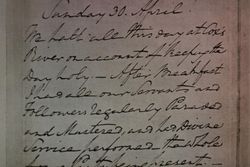 Sunday 30. April.
We halt all this day at Cox's
River on account of keeping the
Day holy. — After Breakfast
I had all our Servants and
Followers regularly Paraded
and Mustered, and had Divine
Service performed the whole
present —